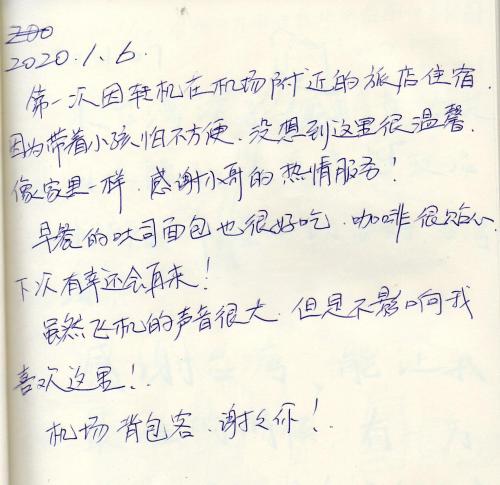 200
2020.1.6.
第一次因转机在机场附近的旅店住宿.
因为带着小孩怕不方便、没想到这里很温馨.
像家里一样. 感谢小哥的热情服务!
早餐的吐司面包也很好吃、咖啡很贴心.
下次有幸还会再来!
虽然飞机的声音很大. 但是不影响我
喜欢这里!.
机场背包客、谢谢你!.